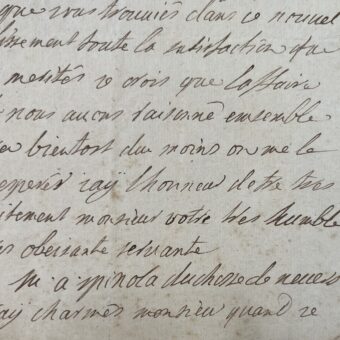 que vous trouviés dans ce nouvel
lissement toute la satisfaction que
merités ie crois que laffaire
nous auons raisonné ensemble
bientost du moins on me le
esperer iay lhonneur destre tres
itement monsieur votre tres humble
es obeissante seruante
m a spinola duchesse de neuers
iay charmés monsieu quand ie